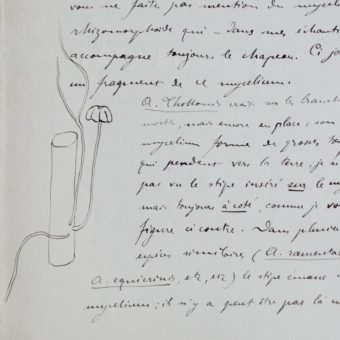 vous ne faites pas mention du myceli
rhizomorphoïde qui – dans mes échanti
accompagne toujours le chapeau. Ci jo
un fragment de ce mycelium.
A. Thollonis croit sur les branch
mortes, mais encore en place; son
mycelium forme de grosses tou
qui pendent vers la terre; je n
pas vu le stipe inséré sur le my
mais toujours à coté, comme je vo
figure ci contre. Dans plusieu
espèces similaires (A. ramenta
A. equicrinis, etc, etc) le stipe emane
mycelium; il n'y a peut être pas là u